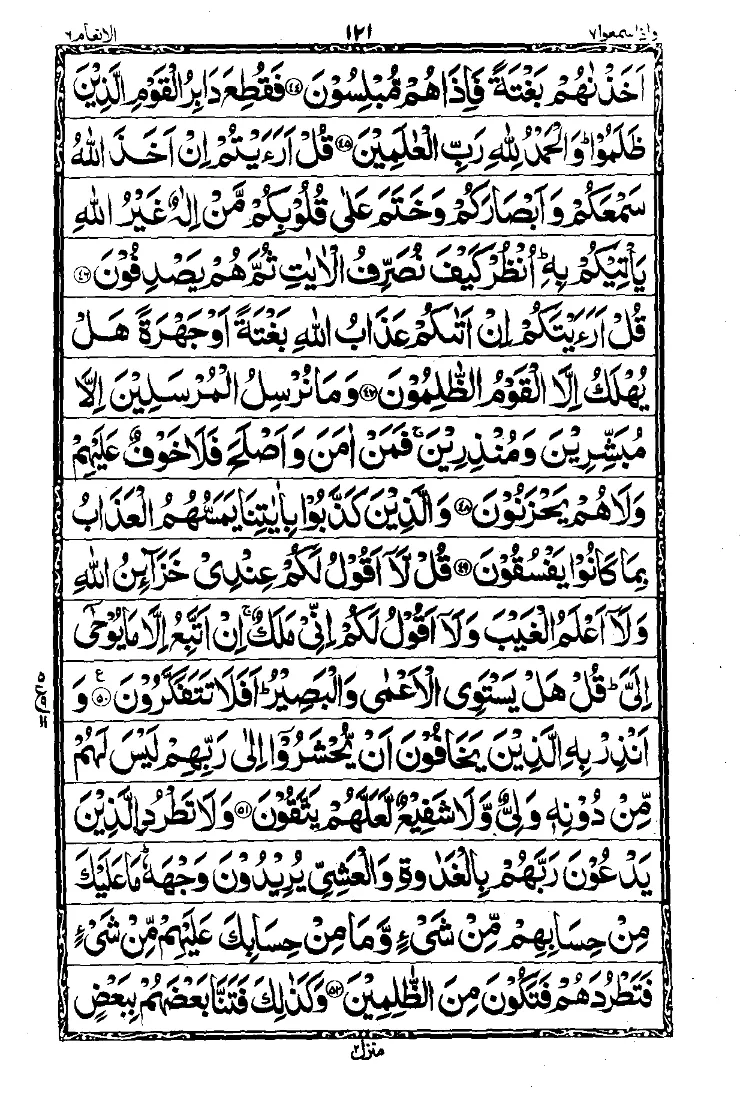 واذا سمعوا ۷ ۱۲۱ الانعام ۶
اَخَذْنٰهُمْ بَغْتَةً فَاِذَا هُمْ مُّبْلِسُوْنَ ﴿۴۴﴾ فَقُطِعَ دَابِرُ الْقَوْمِ الَّذِيْنَ
ظَلَمُوْا ؕ وَالْحَمْدُ لِلّٰهِ رَبِّ الْعٰلَمِيْنَ ﴿۴۵﴾ قُلْ اَرَءَيْتُمْ اِنْ اَخَذَ اللّٰهُ
سَمْعَكُمْ وَاَبْصَارَكُمْ وَخَتَمَ عَلٰى قُلُوْبِكُمْ مَّنْ اِلٰهٌ غَيْرُ اللّٰهِ
يَاْتِيْكُمْ بِهٖ ؕ اُنْظُرْ كَيْفَ نُصَرِّفُ الْاٰيٰتِ ثُمَّ هُمْ يَصْدِفُوْنَ ﴿۴۶﴾
قُلْ اَرَءَيْتَكُمْ اِنْ اَتٰىكُمْ عَذَابُ اللّٰهِ بَغْتَةً اَوْ جَهْرَةً هَلْ
يُهْلَكُ اِلَّا الْقَوْمُ الظّٰلِمُوْنَ ﴿۴۷﴾ وَمَا نُرْسِلُ الْمُرْسَلِيْنَ اِلَّا
مُبَشِّرِيْنَ وَمُنْذِرِيْنَ ۚ فَمَنْ اٰمَنَ وَاَصْلَحَ فَلَا خَوْفٌ عَلَيْهِمْ
وَلَا هُمْ يَحْزَنُوْنَ ﴿۴۸﴾ وَالَّذِيْنَ كَذَّبُوْا بِاٰيٰتِنَا يَمَسُّهُمُ الْعَذَابُ
بِمَا كَانُوْا يَفْسُقُوْنَ ﴿۴۹﴾ قُلْ لَّاۤ اَقُوْلُ لَكُمْ عِنْدِىْ خَزَآئِنُ اللّٰهِ
وَلَاۤ اَعْلَمُ الْغَيْبَ وَلَاۤ اَقُوْلُ لَكُمْ اِنِّىْ مَلَكٌ ۚ اِنْ اَتَّبِعُ اِلَّا مَا يُوْحٰۤى
اِلَىَّ ؕ قُلْ هَلْ يَسْتَوِى الْاَعْمٰى وَالْبَصِيْرُ ؕ اَفَلَا تَتَفَكَّرُوْنَ ﴿۵۰﴾ ع وَ
اَنْذِرْ بِهِ الَّذِيْنَ يَخَافُوْنَ اَنْ يُّحْشَرُوْۤا اِلٰى رَبِّهِمْ لَيْسَ لَهُمْ
مِّنْ دُوْنِهٖ وَلِىٌّ وَّلَا شَفِيْعٌ لَّعَلَّهُمْ يَتَّقُوْنَ ﴿۵۱﴾ وَلَا تَطْرُدِ الَّذِيْنَ
يَدْعُوْنَ رَبَّهُمْ بِالْغَدٰوةِ وَالْعَشِىِّ يُرِيْدُوْنَ وَجْهَهٗ ؕ مَا عَلَيْكَ
مِنْ حِسَابِهِمْ مِّنْ شَىْءٍ وَّمَا مِنْ حِسَابِكَ عَلَيْهِمْ مِّنْ شَىْءٍ
فَتَطْرُدَهُمْ فَتَكُوْنَ مِنَ الظّٰلِمِيْنَ ﴿۵۲﴾ وَكَذٰلِكَ فَتَنَّا بَعْضَهُمْ بِبَعْضٍ
منزل ۲